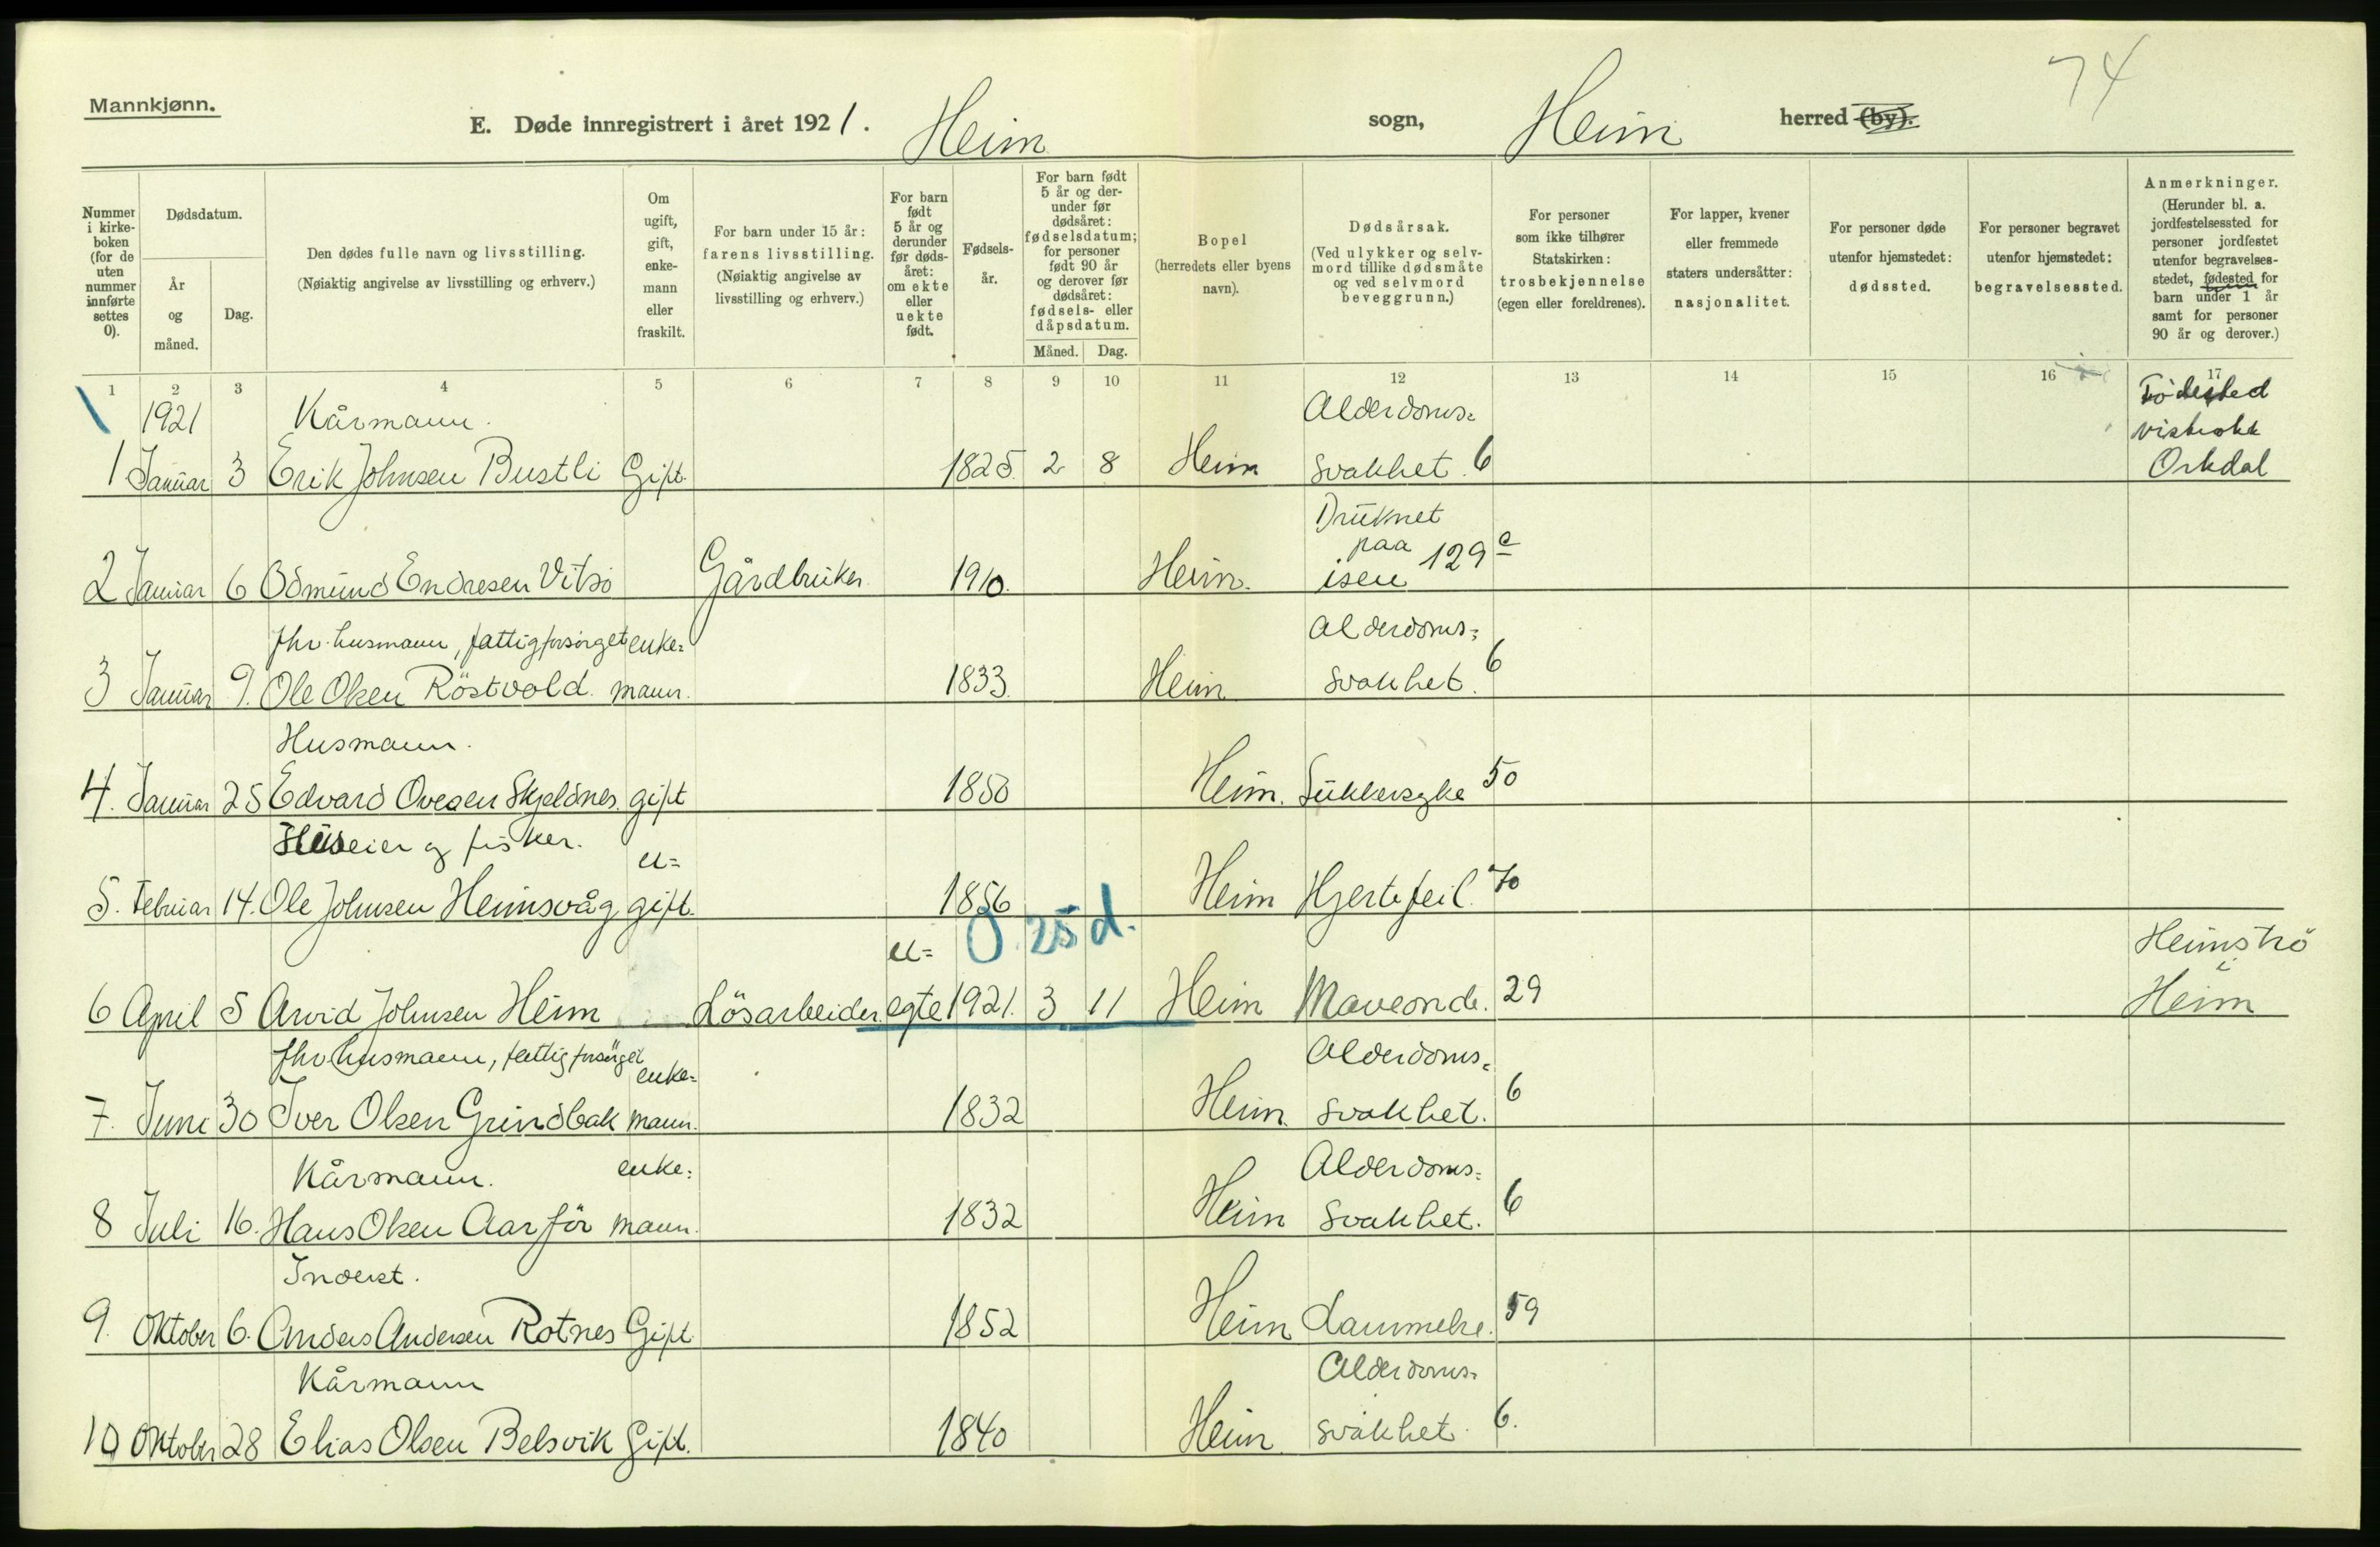 74
Mannkjønn.
E. Døde innregistrert i året 1921. Heim sogn, Heim herred (by).
Nummer i kirkeboken (for de uten nummer innførte settes 0).
Dødsdatum.
År og måned.
Dag.
Den dødes fulle navn og livsstilling.
(Nøiaktig angivelse av livsstilling og erhverv.)
Om ugift, gift, enkemann eller fraskilt.
For barn under 15 år: farens livsstilling.
(Nøiaktig angivelse av livsstilling og erhverv.)
For barn født 5 år og derunder før dødsåret: om ekte eller uekte født.
Fødselsår.
For barn født 5 år og derunder før dødsåret: fødselsdatum; for personer født 90 år og derover før dødsåret: fødsels- eller dåpsdatum.
Måned. Dag.
Bopel
(herredets eller byens navn).
Dødsårsak.
(Ved ulykker og selvmord tillike dødsmåte og ved selvmord beveggrunn.)
For personer som ikke tilhører Statskirken: trosbekjennelse (egen eller foreldrenes).
For lapper, kvener eller fremmede staters undersåtter: nasjonalitet.
For personer døde utenfor hjemstedet: dødssted.
For personer begravet utenfor hjemstedet: begravelsessted.
Anmerkninger.
(Herunder bl. a. jordfestelsessted for personer jordfestet utenfor begravelsesstedet, fødested for barn under 1 år samt for personer 90 år og derover.)
1 2 3 4 5 6 7 8 9 10 11 12 13 14 15 16 17
1921 Kårmann. Alderdoms= Fødested
1 Januar 3 Erik Johnsen Bustli Gift. 1825. 2 8 Heim svakhet. 6 Orkdal
Druknet
paa 129 c
2 Januar 6 Odmund Endresen Vitsö Gårdbruker. 1910. Heim. isen
Fhv. husmann, fattigforsörget enke= Alderdoms=
3 Januar 9. Ole Olsen Röstvold. mann. 1833. Heim svakhet. 6
Husmann.
4. Januar 25 Edvard Ovesen Skjeldnes. gift 1850 Heim. Sukkersyke 50
Huseier og fisker. u=
5. Februar 14. Ole Johnsen Heimsvåg gift. 1856 Heim Hjertefeil. 70
u= 0 25 d. Heimströ
6 April 5 Arvid Johnsen Heim Lösarbeider. egte 1921. 3 11 Heim Maveonde. 29 i Heim
Fhv husmann, fattigforsörget enke= Alderdoms=
7. Juni 30 Iver Olsen Grindbak mann. 1832 Heim. svakhet. 6
Kårmann. enke= Alderdoms=
8 Juli 16. Hans Olsen Aarför mann. 1832 Heim svakhet. 6
Inderst.
9. Oktober 6. Anders Andersen Rotnes Gift 1852 Heim Lammelse. 59
Kårmann Alderdoms=
10 Oktober 28 Elias Olsen Belsvik Gift. 1840 Heim svakhet. 6.